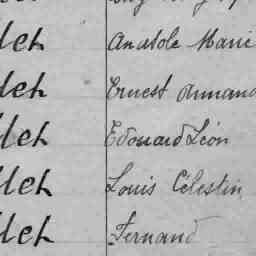 let Anatole Marie
let Ernest Armand
let Edouard Léon
let Louis Célestin
let Fernand